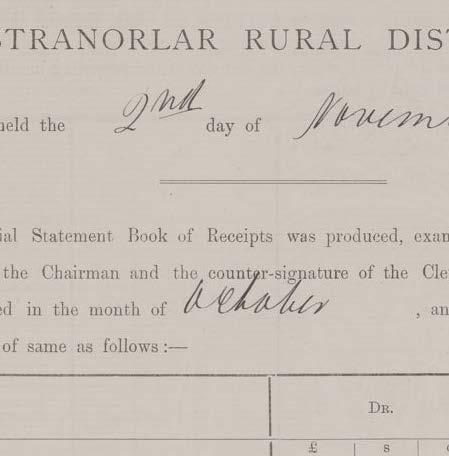 STRANORLAR RURAL DIST
held the 2nd day of Novem
ial Statement Book of Receipts was produced, exam
the Chairman and the counter-signature of the Cle
ed in the month of October , an
of same as follows :—
DR.
£ s